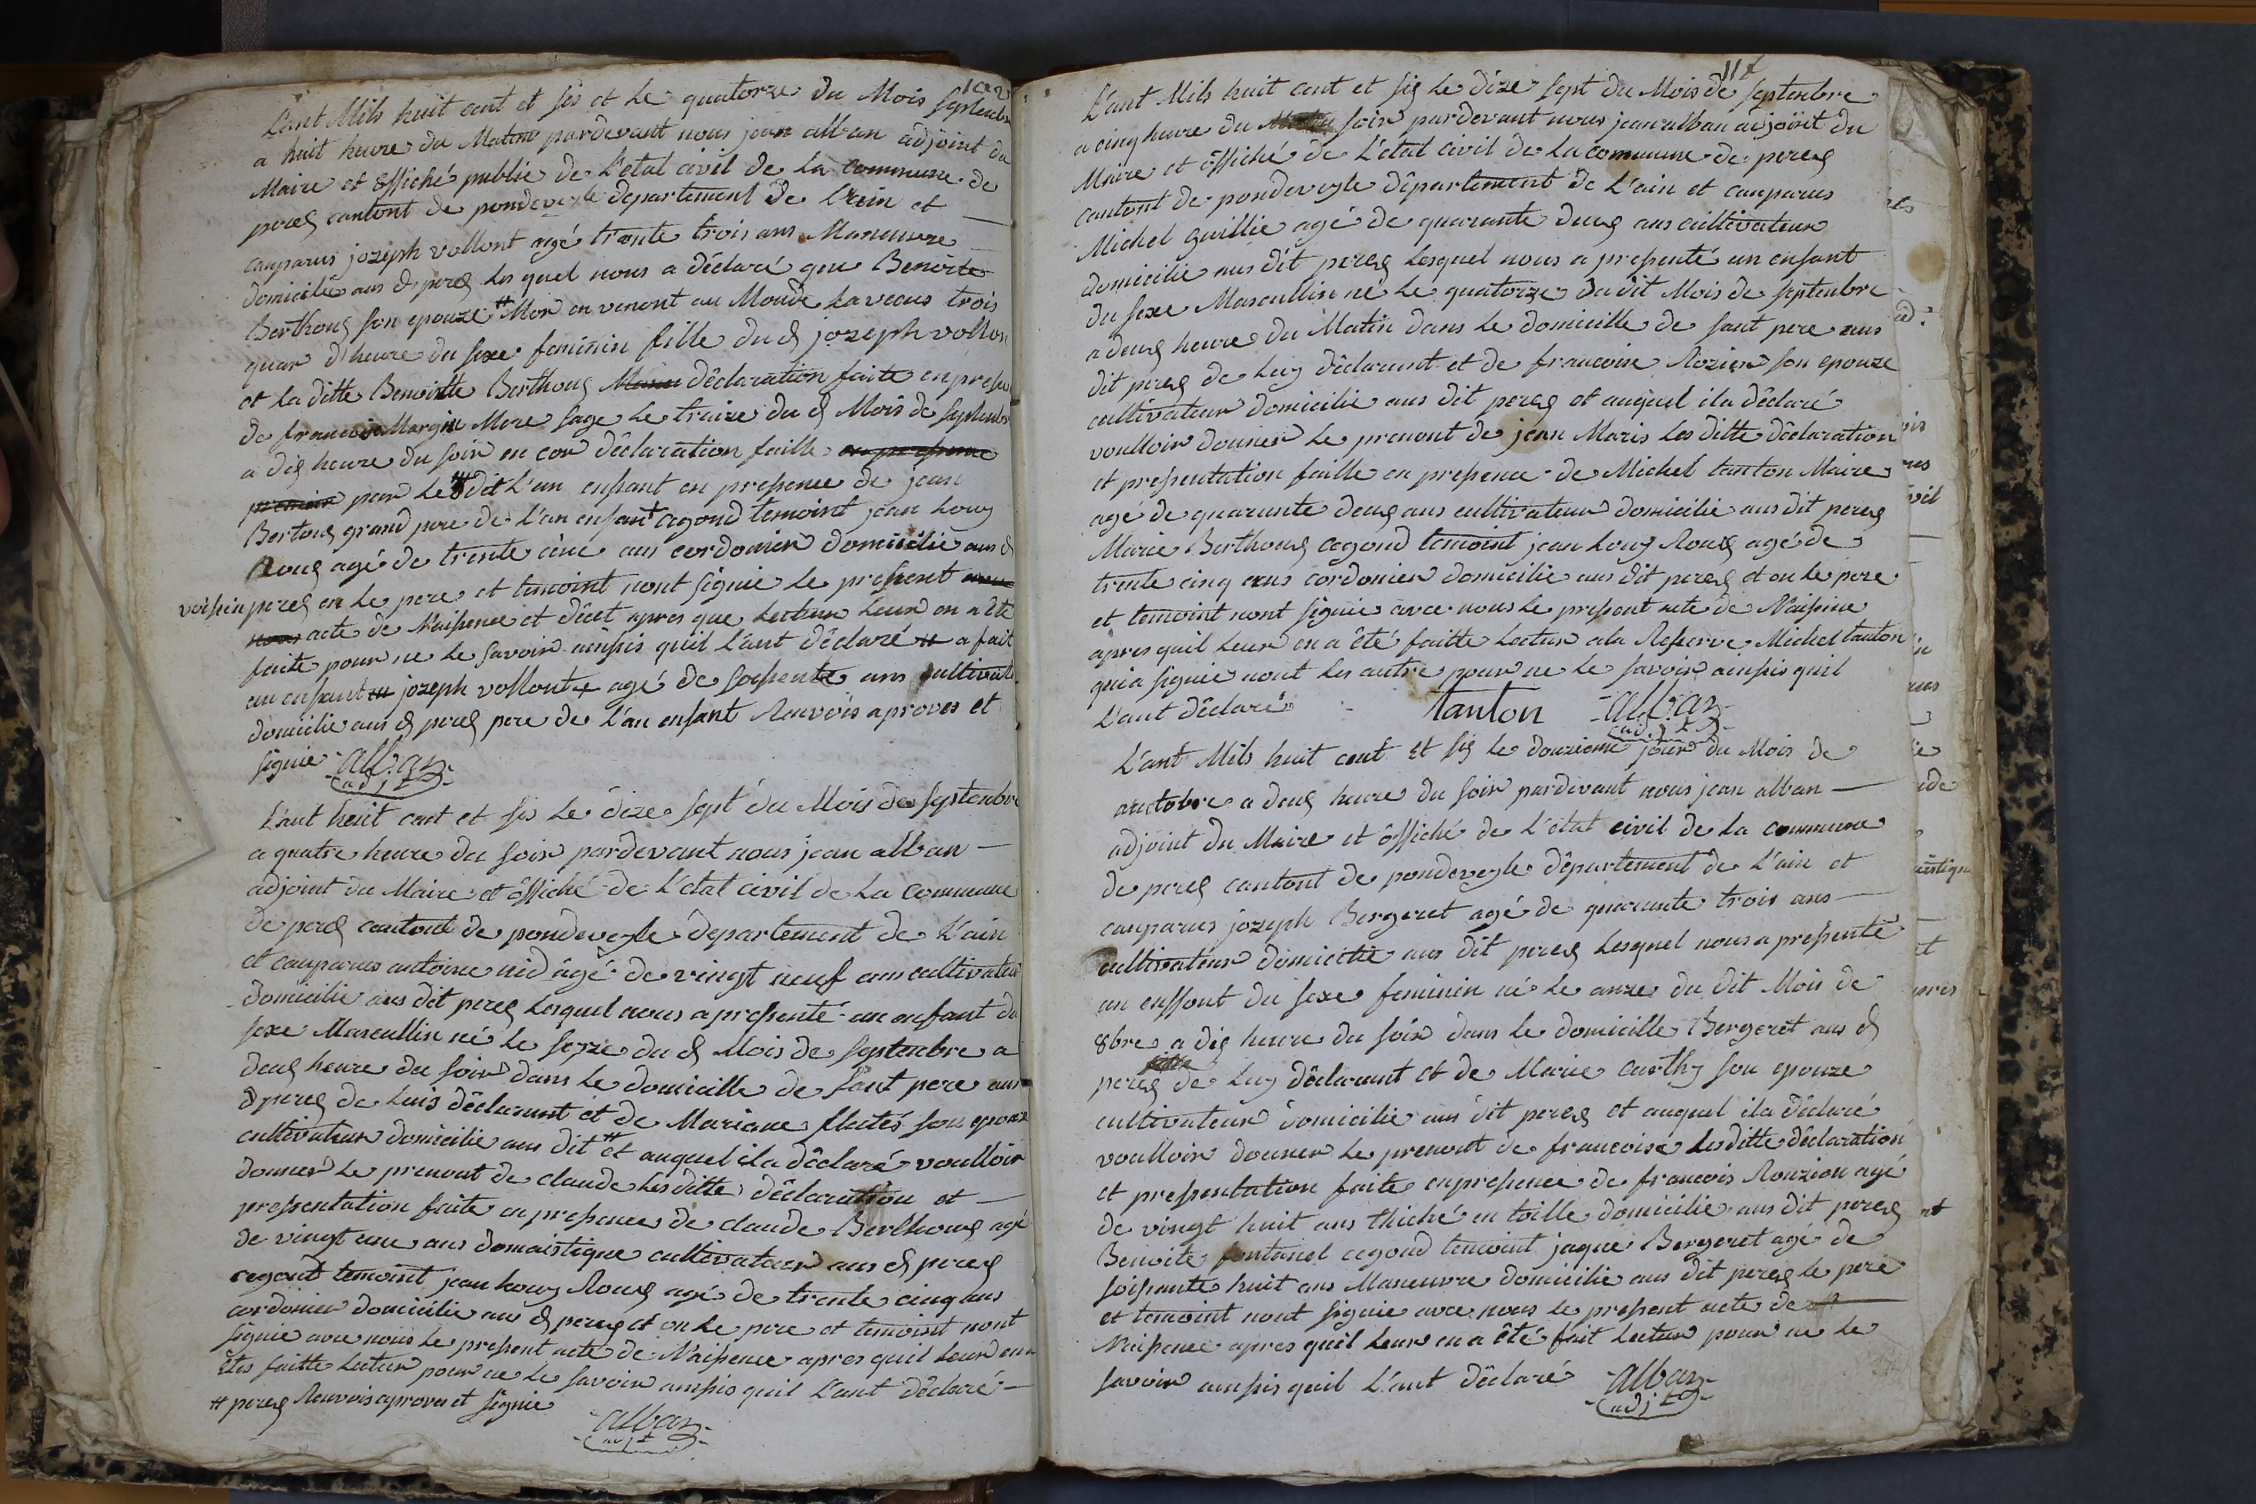 L'ant Mils huit cent et sis et le quatorze du Mois septenbre
a huit heure du Matin pardevant nous jean alban adjoint du
Maire et offiché public de L'etat civil de la commune de
perex cantont de pondeveyle departement de L'ain et
conparus jozeph vollont agé trente trois ans Maneuvre
domicilié aus d perex les quel nous a déclaré que Benoite
Berthoux son epouze # Mor en venent au Monde La vecus trois
quar d'heure du sexe feminin fille du d jozeph vollon
et la ditte Benoitte Berthoux déclaration faite en presen
de francois Margin Mere sage le traize du d Mois de septenbre
a dix heure du soir en cor déclaration faitte
par le dit L'an enfant en presence de jean
Bertoux grand pere de L'an enfant cegond temoint jean Louy
Roux agé de trente cinc ans cordonier domicilié aus d
voissin perex en le pere et temoint nont signie le present
acte de Naissence et décet apres que Lectur leur en a été
faite pour ne le savoir ainssis quil L'ant déclaré # a fait
un enfant jozeph vollont + agé de soissente ans cultivate
domicilié aus d perex pere de L'an enfant Renvois aprover et
signie alban
adjt
L'ant huit cent et sis le dize sept du Mois de septenbre
a quatre heure du soir pardevant nous jean alban
adjoint du Maire et offiché de L'etat civil de la commune
de perex cantont de pondeveyle departement de L'ain
et conparus antoine nid agé de vingt neuf ans cultivateur
domicilié aus dit perex Lesquel nous a pressenté un enfant du
sexe Masculin né le sezze du d Mois de septenbre a
deux heure du soir dans le domicille de sant pere aus
d perex de Luis déclarant et de Mariane flatés son epouze
cultivateur domicilié aus dit # et auquel ila déclaré voulloir
donner le prenont de claude Les ditte déclaration et
pressentation faite en pressence de claude Berthoux agé
de vingt une ans domaistique cultivateur aus d perex
cegont temoint jean Louy Roux agé de trente cinq ans
cordonier domicilié aus d perex et en le pere et temoint nont
signie avec nous le present acte de Naissence apres quil leur en a
étés faitte Lectur pour ne le savoir ainssis quil L'ant déclaré
# perex Renvois aprover et signie
alban
adjt
118
L'ant Mils huit cent et six le dize sept du Mois de septenbre
a cinq heure du soir pardevant nous jean alban adjoint du
Maire et offiché de L'état civil de La commune de perex
cantont de pondeveyle département de L'ain et conparus
Michel Guillie agé de quarante deux ans cultivateur
domicilié aus dit perex Lesquel nous a pressenté un enfant
du sexe Masculin né le quatorze du dit Mois de septenbre
a deux heure du Matin dans le domicille de sant pere aus
dit perex de Luy déclarant et de francoise Rozier son epouze
cultivateur domicilié aus dit perex et auquel ila déclaré
voulloir donner le prenont de jean Maris Les ditte déclaration
et pressentation faitte en pressence de Michel tanton Maire
agé de quarante deux ans cultivateur domicilié aus dit perex
Marie Berthoux cegond temoint jean Louy Roux agé de
trente cinq ans cordonier domicilié aus dit perex et en le pere
et temoint nont signie avec nous le pressent acte de Naissince
apres quil leur en a été faitte Lectur ala Reserve Michel tanton
qui a signie nont les autre pour ne le savoir ainssis quil
L'ant déclaré tanton alban
adjt
L'ant Mils huit cent et six le douzieme jour du Mois de
auctobre a deux heure du soir pardevant nous jean alban
adjoint du Maire et offiché de L'état civil de la commune
de perex cantont de pondeveyle département de L'ain et
conparus jozeph Bergeret agé de quarante trois ans
cultivateur domicilié aus dit perex Lesquel nous a pressenté
un enffont du sexe feminin né le onze du dit Mois de
8bre a dix heure du soir dans le domicille Bergeret aus d
perex de Luy déclarant et de Marie carthy son epouze
cultivateur domicilié aus dit perex et auquel ila déclaré
voulloir donner le prenont de francoise Les ditte déclaration
et pressentation faite en presence de francois Rouzion agé
de vingt huit ans thiché en toille domicilié aus dit perex
Benoite fontanel cegond temoint jaque Bergeret agé de
soissente huit ans Maneuvre domicilié aus dit perex le pere
et temoint nont signie avec nous le pressent acte de
Naissence apres quil leur en a été fait Lectur pour ne le
savoir ainssis quil L'ant déclaré alban
adjt